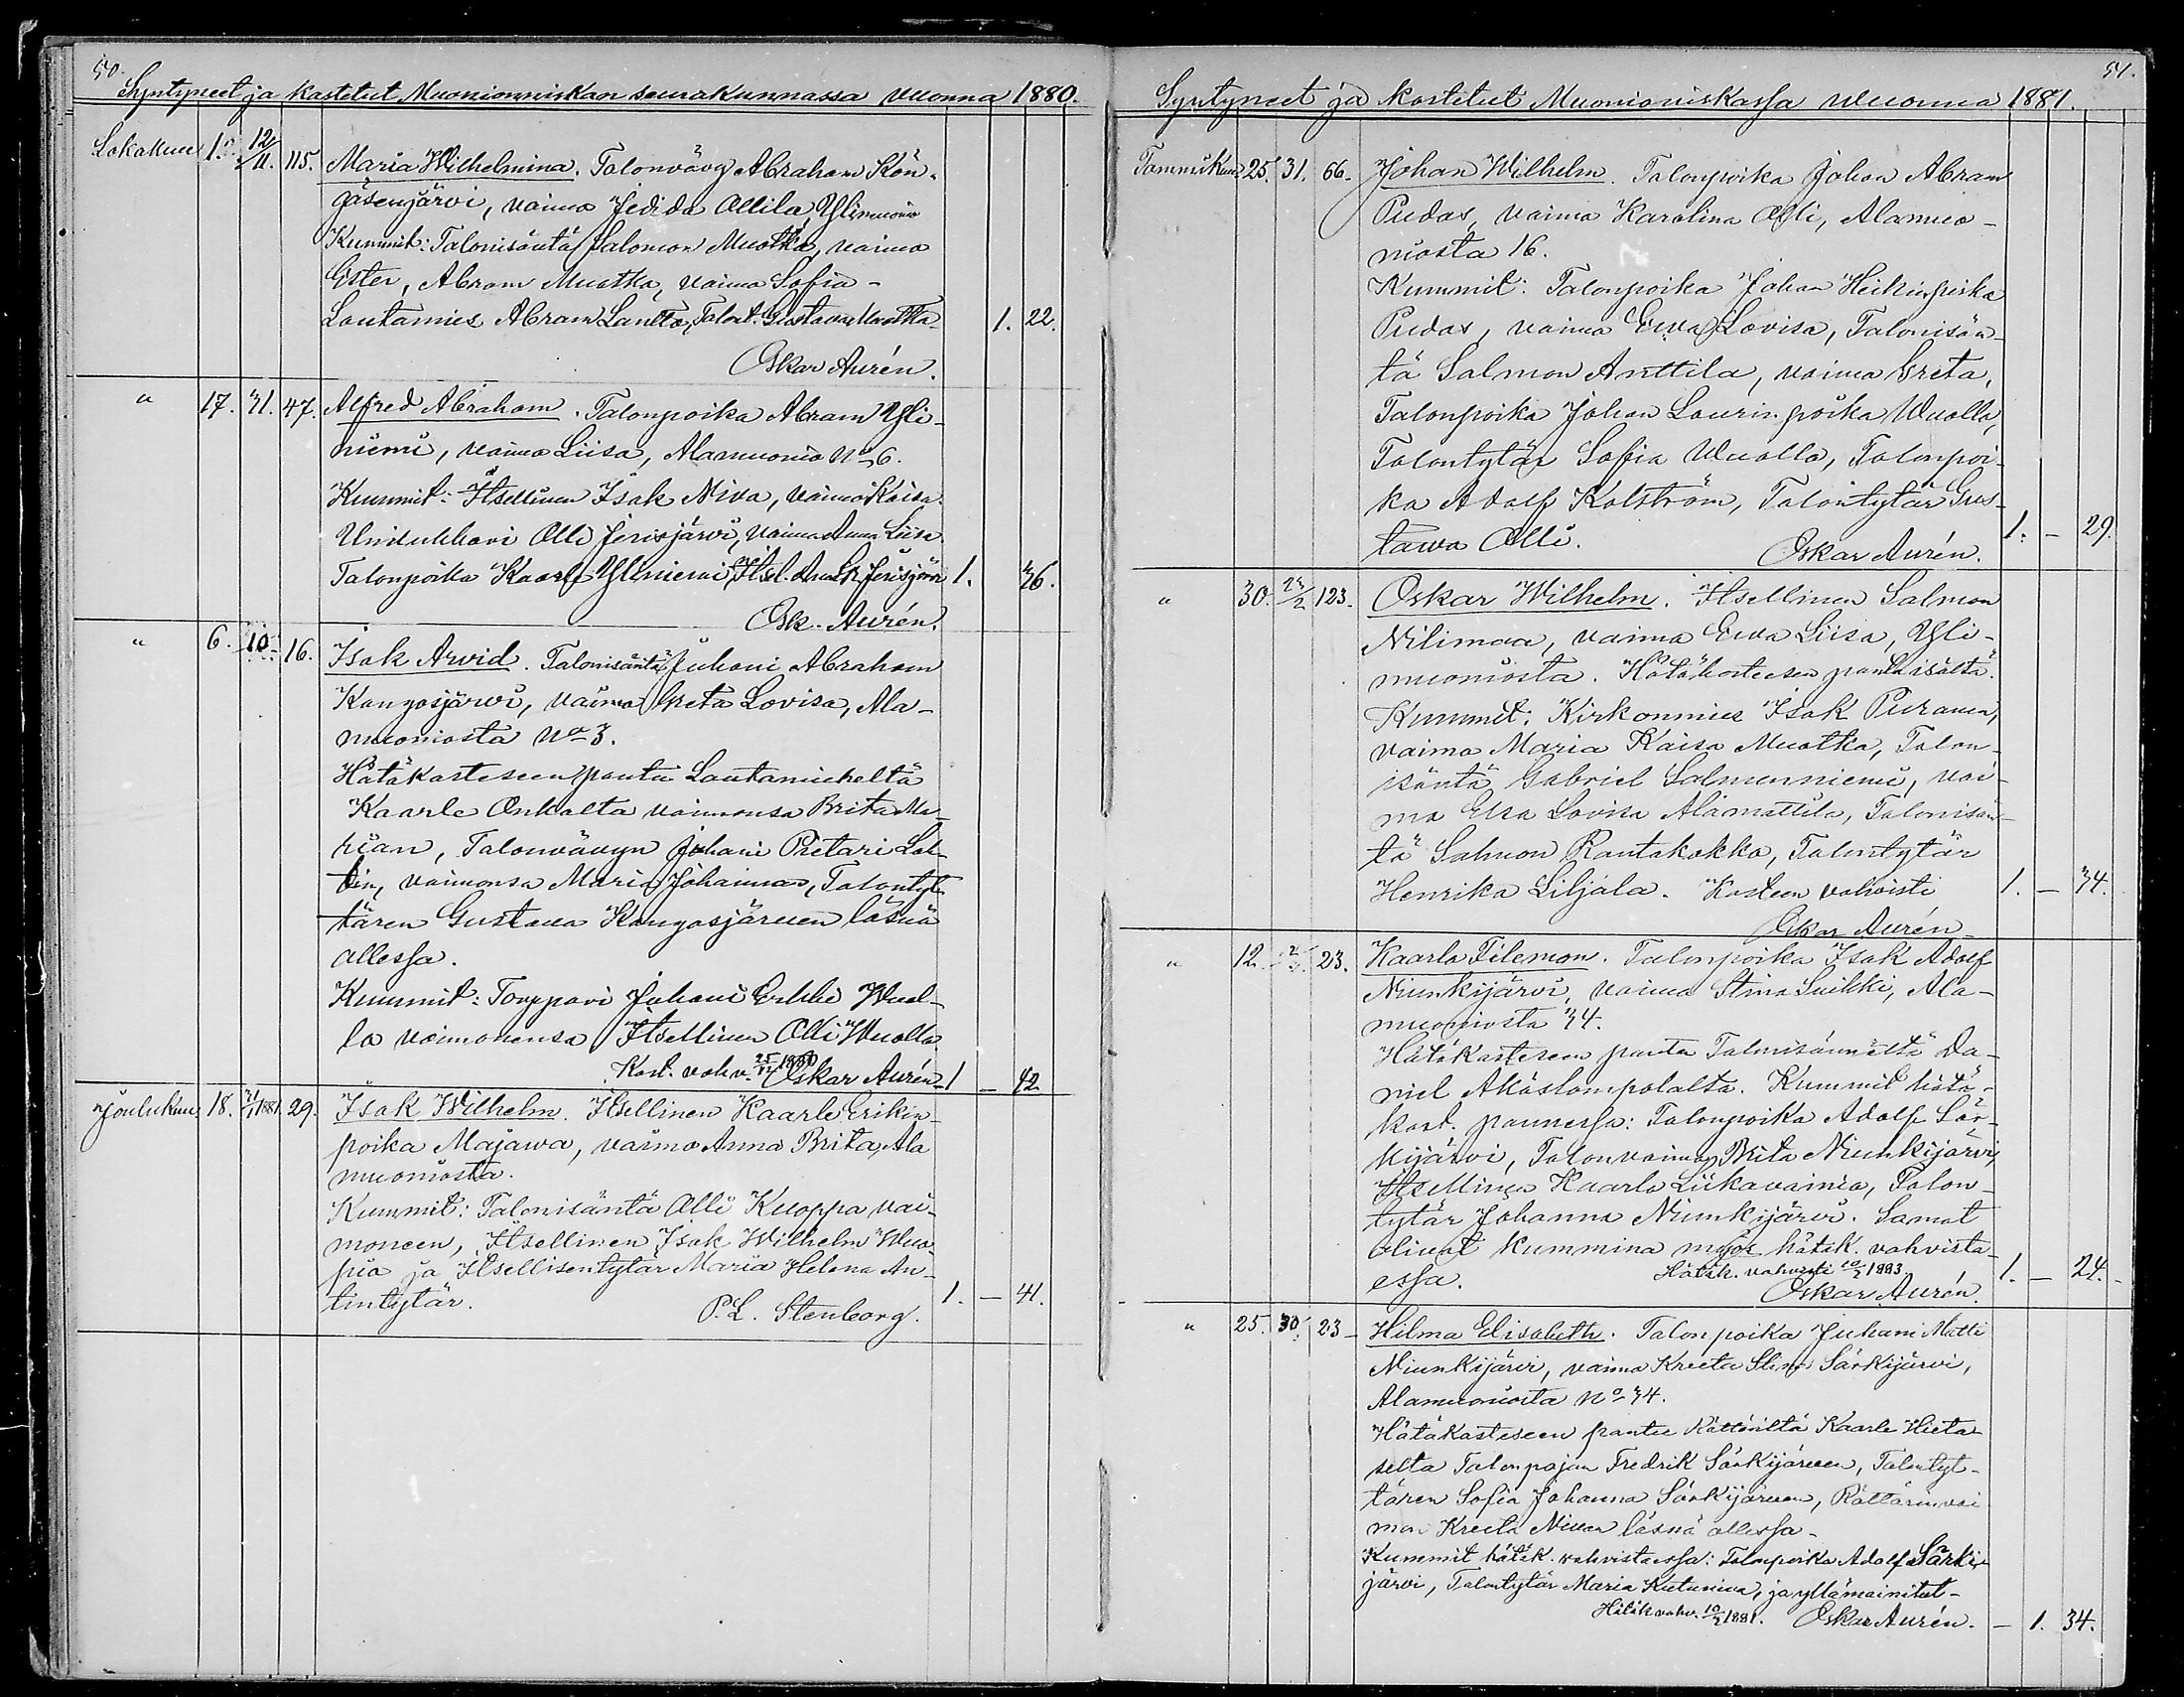 50.
Syntyneet ja kastetut Muonionniskan seurakunnassa vuonna 1880.
Lokakuu 1. 12/11. 115. Maria Wilhelmina. Talonvävy Abraham Kön-
gäsenjärvi, vaimo Jedida Ollila, Ylimuonio
Kummit: Talonisäntä Salomon Muotka, vaimo
Ester, Abram Muotka, vaimo Sofia -
Lautamies Abram Lantto, Talont. Gustava Muotka 1. 22.
Oskar Aurén.
" 17. 31. 47. Alfred Abraham. Talonpoika Abram Yli-
niemi, vaimo Liisa, Alamuonio No 6.
Kummit: Itsellinen Isak Niva, vaimo Kaisa
Uudukkari Olli Jerisjärvi, vaimo Anna Liisa
Talonpoika Kaarle Yliniemi, Itsel. Jerisjärvi 1. 36.
Osk. Aurén.
" 6. 10. 16. Isak Arvid. Talonisäntä Juhani Abraham
Kangosjärvi, vaimo Greta Lovisa, Ala-
muoniosta No 3.
Hätäkasteseen pantu Lautamieheltä
Kaarle Onkalta vaimonsa Brita Ma-
rian, Talonvävyn Juhani Pietari Lal-
tin, vaimonsa Maria Johannan, Talontyt-
tären Gustava Kangosjärven läsnä
ollessa.
Kummit: Torppari Juhani Erkki Wuol-
lo vaimonensa Itsellinen Olli Wuollo
Kast. vahv. 25/12 1880 Oskar Aurén 1 - 42
Joulukuu 18. 2/1 1881. 29. Isak Wilhelm. Itsellinen Kaarle Erikin
poika Majawa, vaimo Anna Brita, Ala
muoniosta.
Kummit: Talonisäntä Olli Kuoppa vai-
moneen, Itsellinen Isak Wilhelm Wuo-
pio ja Itsellisentytär Maria Helena An-
tintytär. 1. - 41.
P. L. Stenborg.
51.
Syntyneet ja kastetut Muonioniskassa vuonna 1881.
Tammikuu 25. 31. 66. Johan Wilhelm. Talonpoika Johan Abram
Pudas, vaimo Karolina Olli, Alamuo-
niosta 16.
Kummit: Talonpoika Johan Heikinpoika
Pudas, vaimo Ewa Lovisa, Talonisän-
tä Salmon Anttila, vaimo Greta,
Talonpoika Johan Laurin poika Wuollo,
Talontytär Sofia Wuollo, Talonpoi-
ka Adolf Kolström, Talontytär Gus-
tawa Olli. 1. - 29.
Oskar Aurén.
" 30. 23/2 123. Oskar Wilhelm. Itsellinen Salmon
Nilimaa, vaimo Ewa Liisa, Yli-
muoniosta. Hätäkasteesen pantu isältä.
Kummit: Kirkonmies Isak Puranen,
vaimo Maria Kaisa Muotka, Talon-
isäntä Gabriel Salmenniemi, vai-
mo Elsa Lovisa Alamattila, Talonisän-
tä Salmon Rantakokko, Talontytär
Henrika Liljala. Kasteen vahvisti 1. - 34.
Oskar Aurén
" 12. 23. Kaarlo Filemon. Talonpoika Isak Adolf
Niunkijärvi, vaimo Stina Suikki, Ala-
muoniosta 34.
Hätäkasteseen pantu Talonisännältä Da-
niel Äkäslompolalta. Kummit hätä-
kast. pannessa: Talonpoika Adolf Sär-
kijärvi, Talonvaimo Brita Niunkijärvi,
Itsellinen Kaarlo Liikavainio, Talon-
tytär Johanna Niunkijärvi. Samat
olivat kummina myös hätäk. vahvista-
essa. Hätäk. vahvisti 10/2 1883. 1. - 24.
Oskar Aurén.
" 25. 30. 23 Hilma Elisabeth. Talonpoika Juhani Matti
Niunkijärvi, vaimo Kreeta Stina Särkijärvi,
Alamuoniosta No 34.
Hätäkasteseen pantu Rättäriltä Kaarle Hieta-
selta Talonpojan Fredrik Särkijärven, Talontyt-
tären Sofia Johanna Särkijärven, Rättärin vai
mon Kreeta Nivan läsnä ollessa -
Kummit hätäk. vahvistaessa: Talonpoika Adolf Särki-
järvi, Talontytär Maria Kutuniva, ja yllämainitut -
Hätäk. vahv. 10/2 1881. Oskar Aurén. - 1. 34.